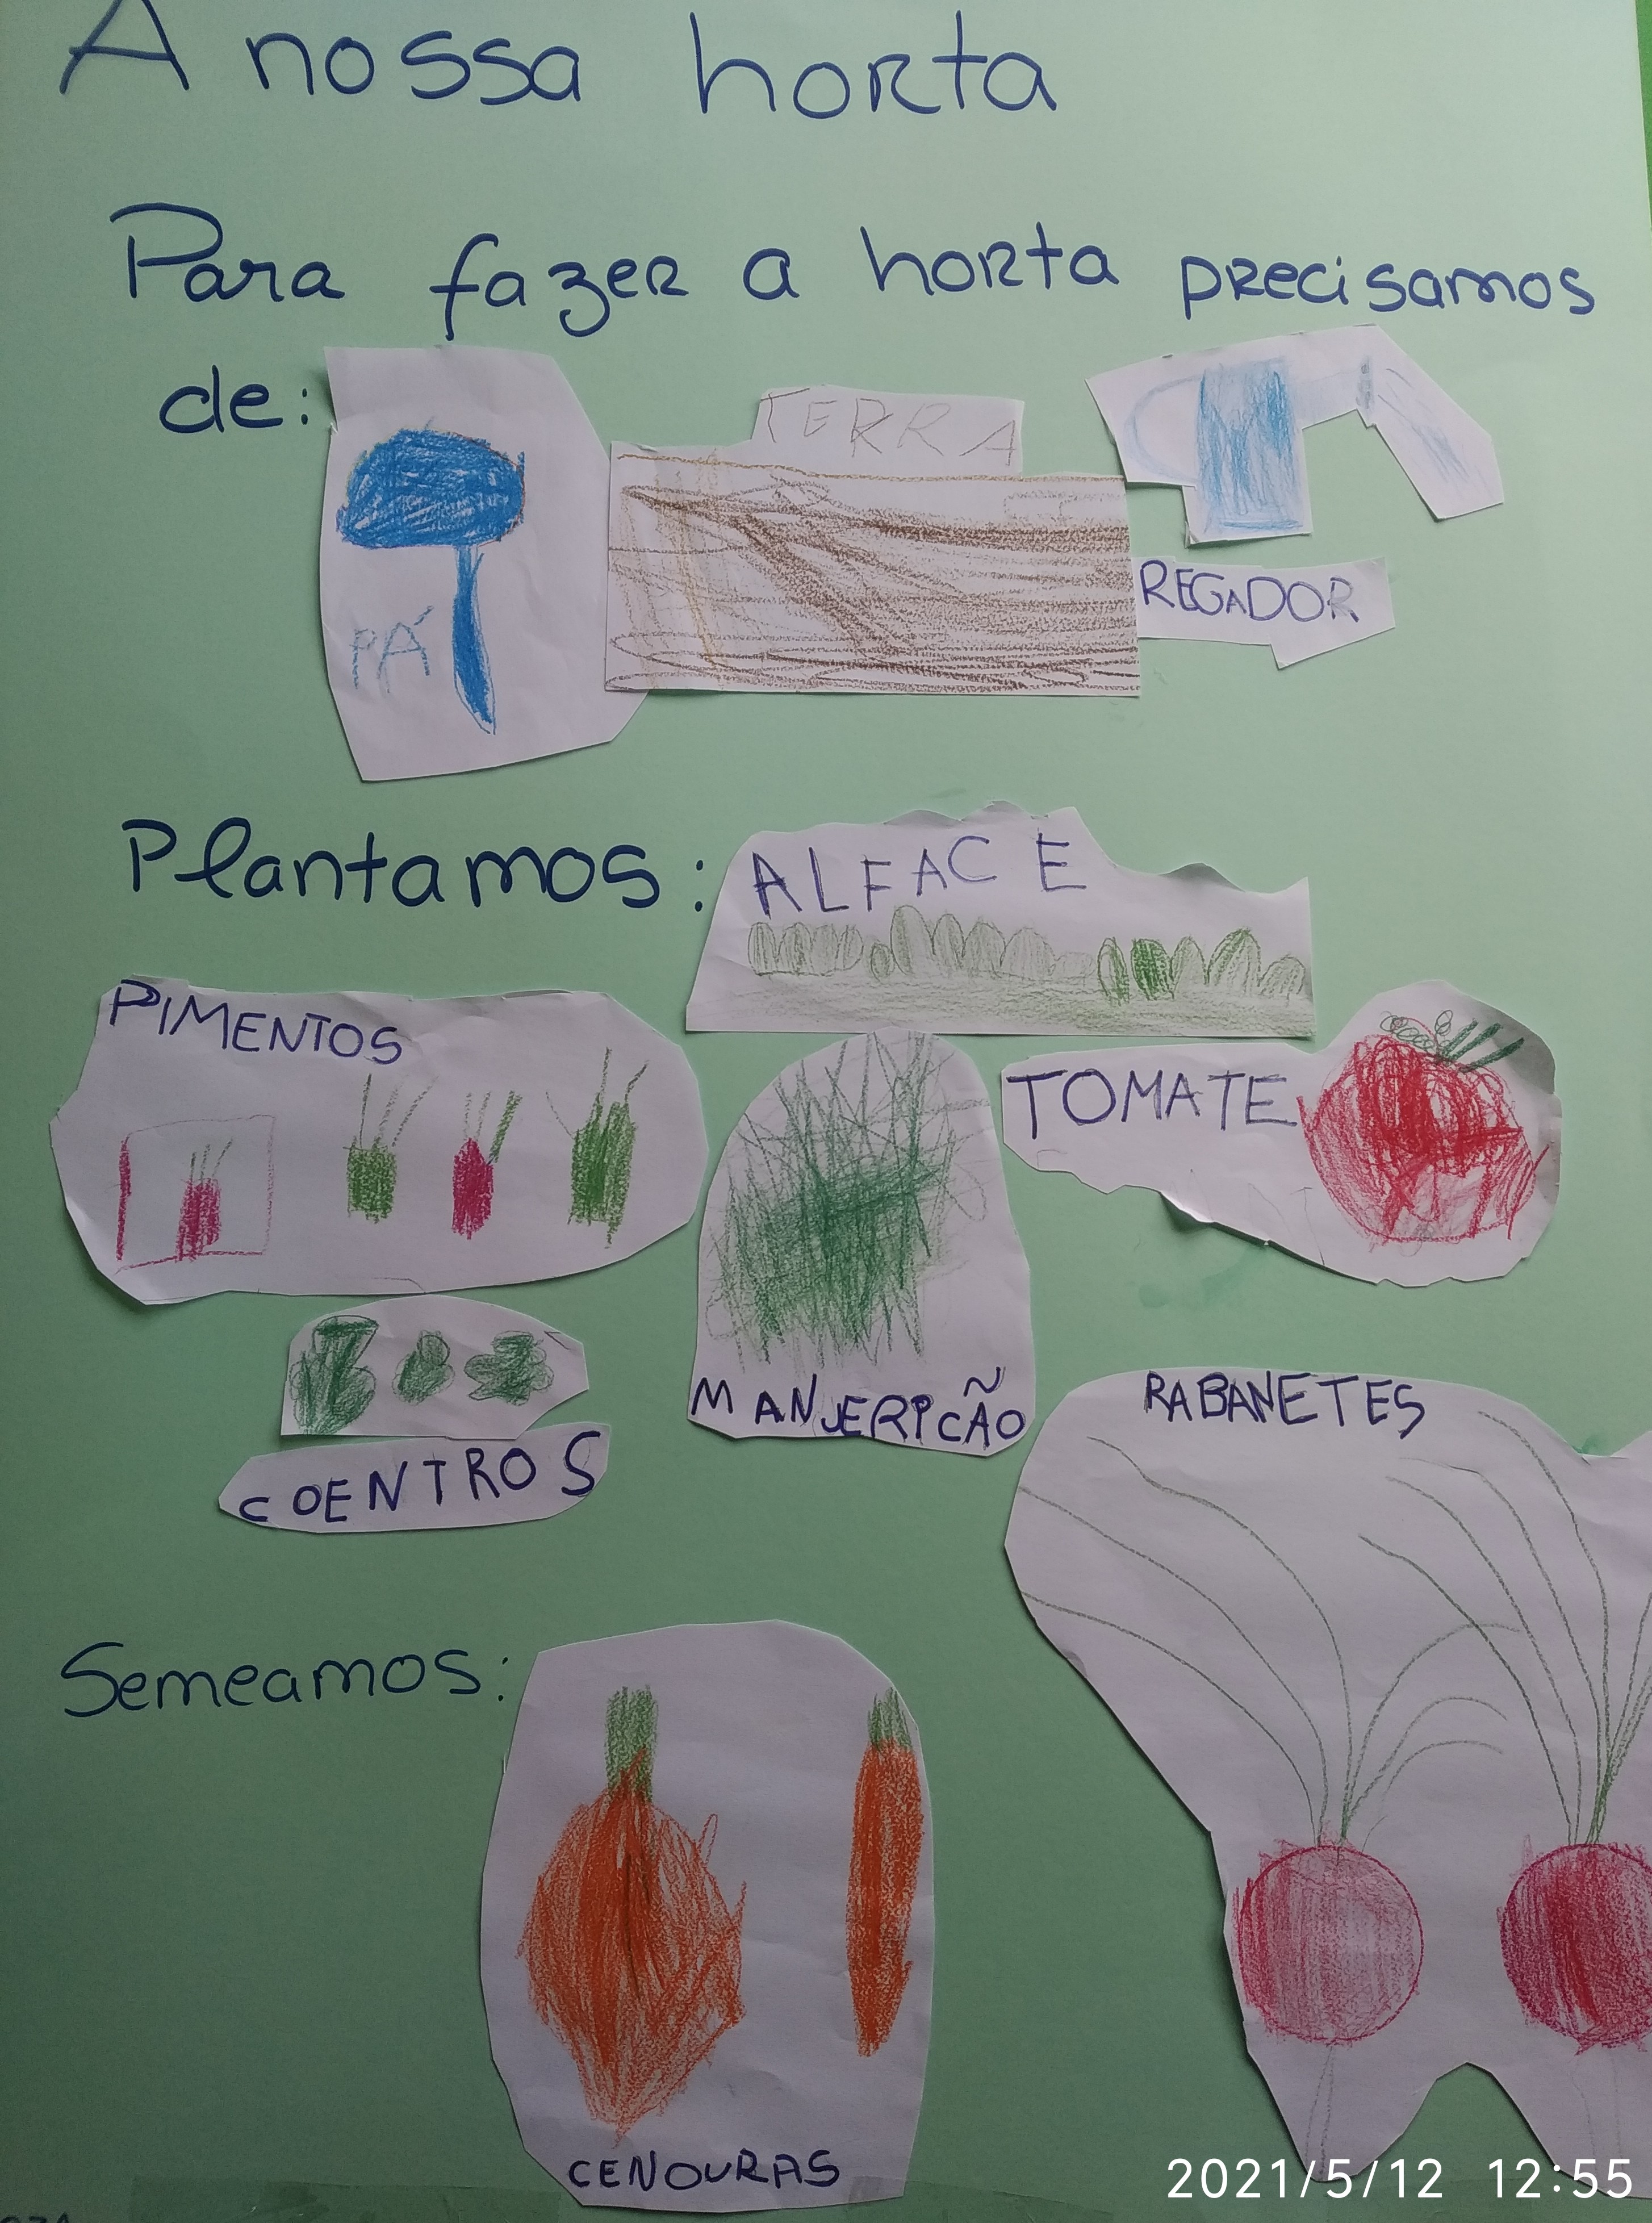 A nossa horta
Para fazer a horta precisamos
de:
TERRA
PÁ
REGADOR
Plantamos:
ALFACE
PIMENTOS
TOMATE
MANJERICÃO
COENTROS
RABANETES
Semeamos:
CENOURAS
2021/5/12 12:55